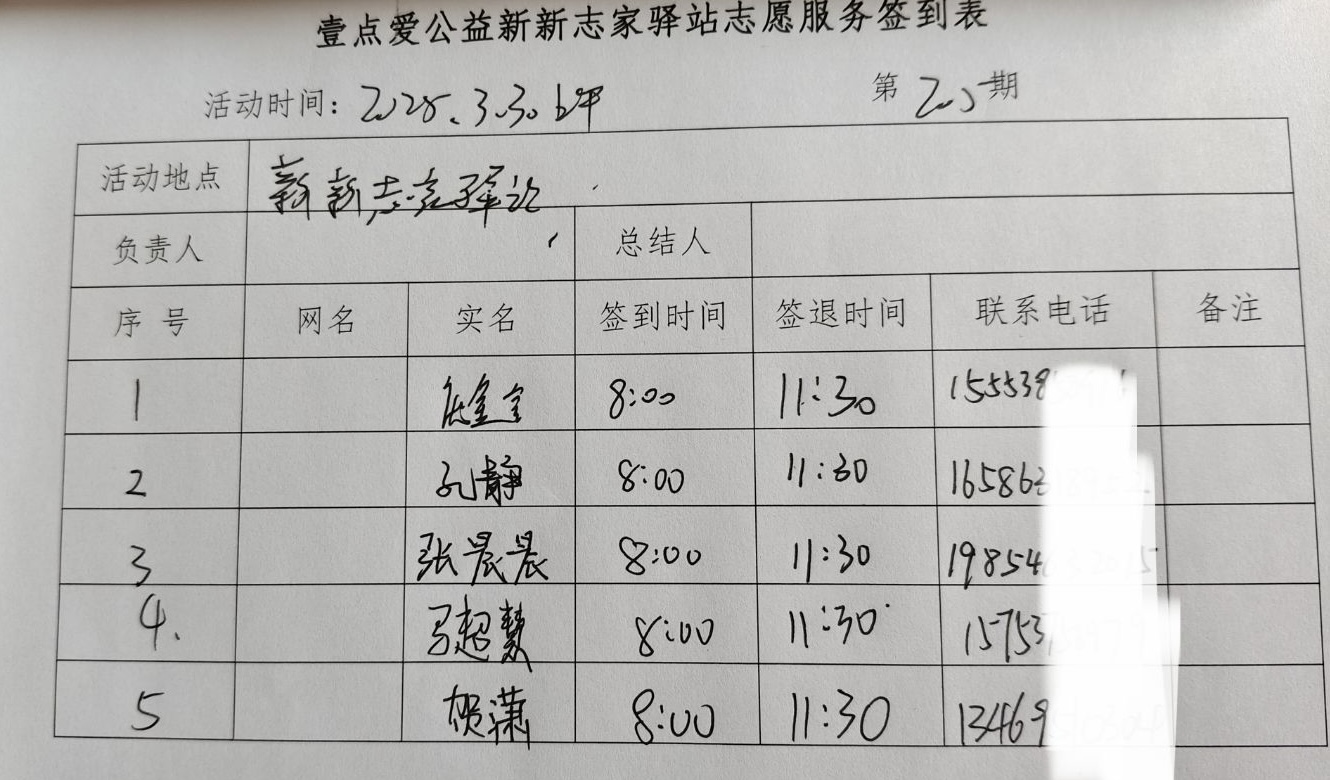 壹点爱公益新新志家驿站志愿服务签到表
活动时间：2025.3.30 第205期
活动地点 新新志家驿站
负责人 总结人
序号 网名 实名 签到时间 签退时间 联系电话 备注
1 8:00 11:30 155538
2 孔静 8:00 11:30 165863
3 张晨晨 8:00 11:30 19854
4. 马超慧 8:00 11:30 15753
5 贺潇 8:00 11:30 13469